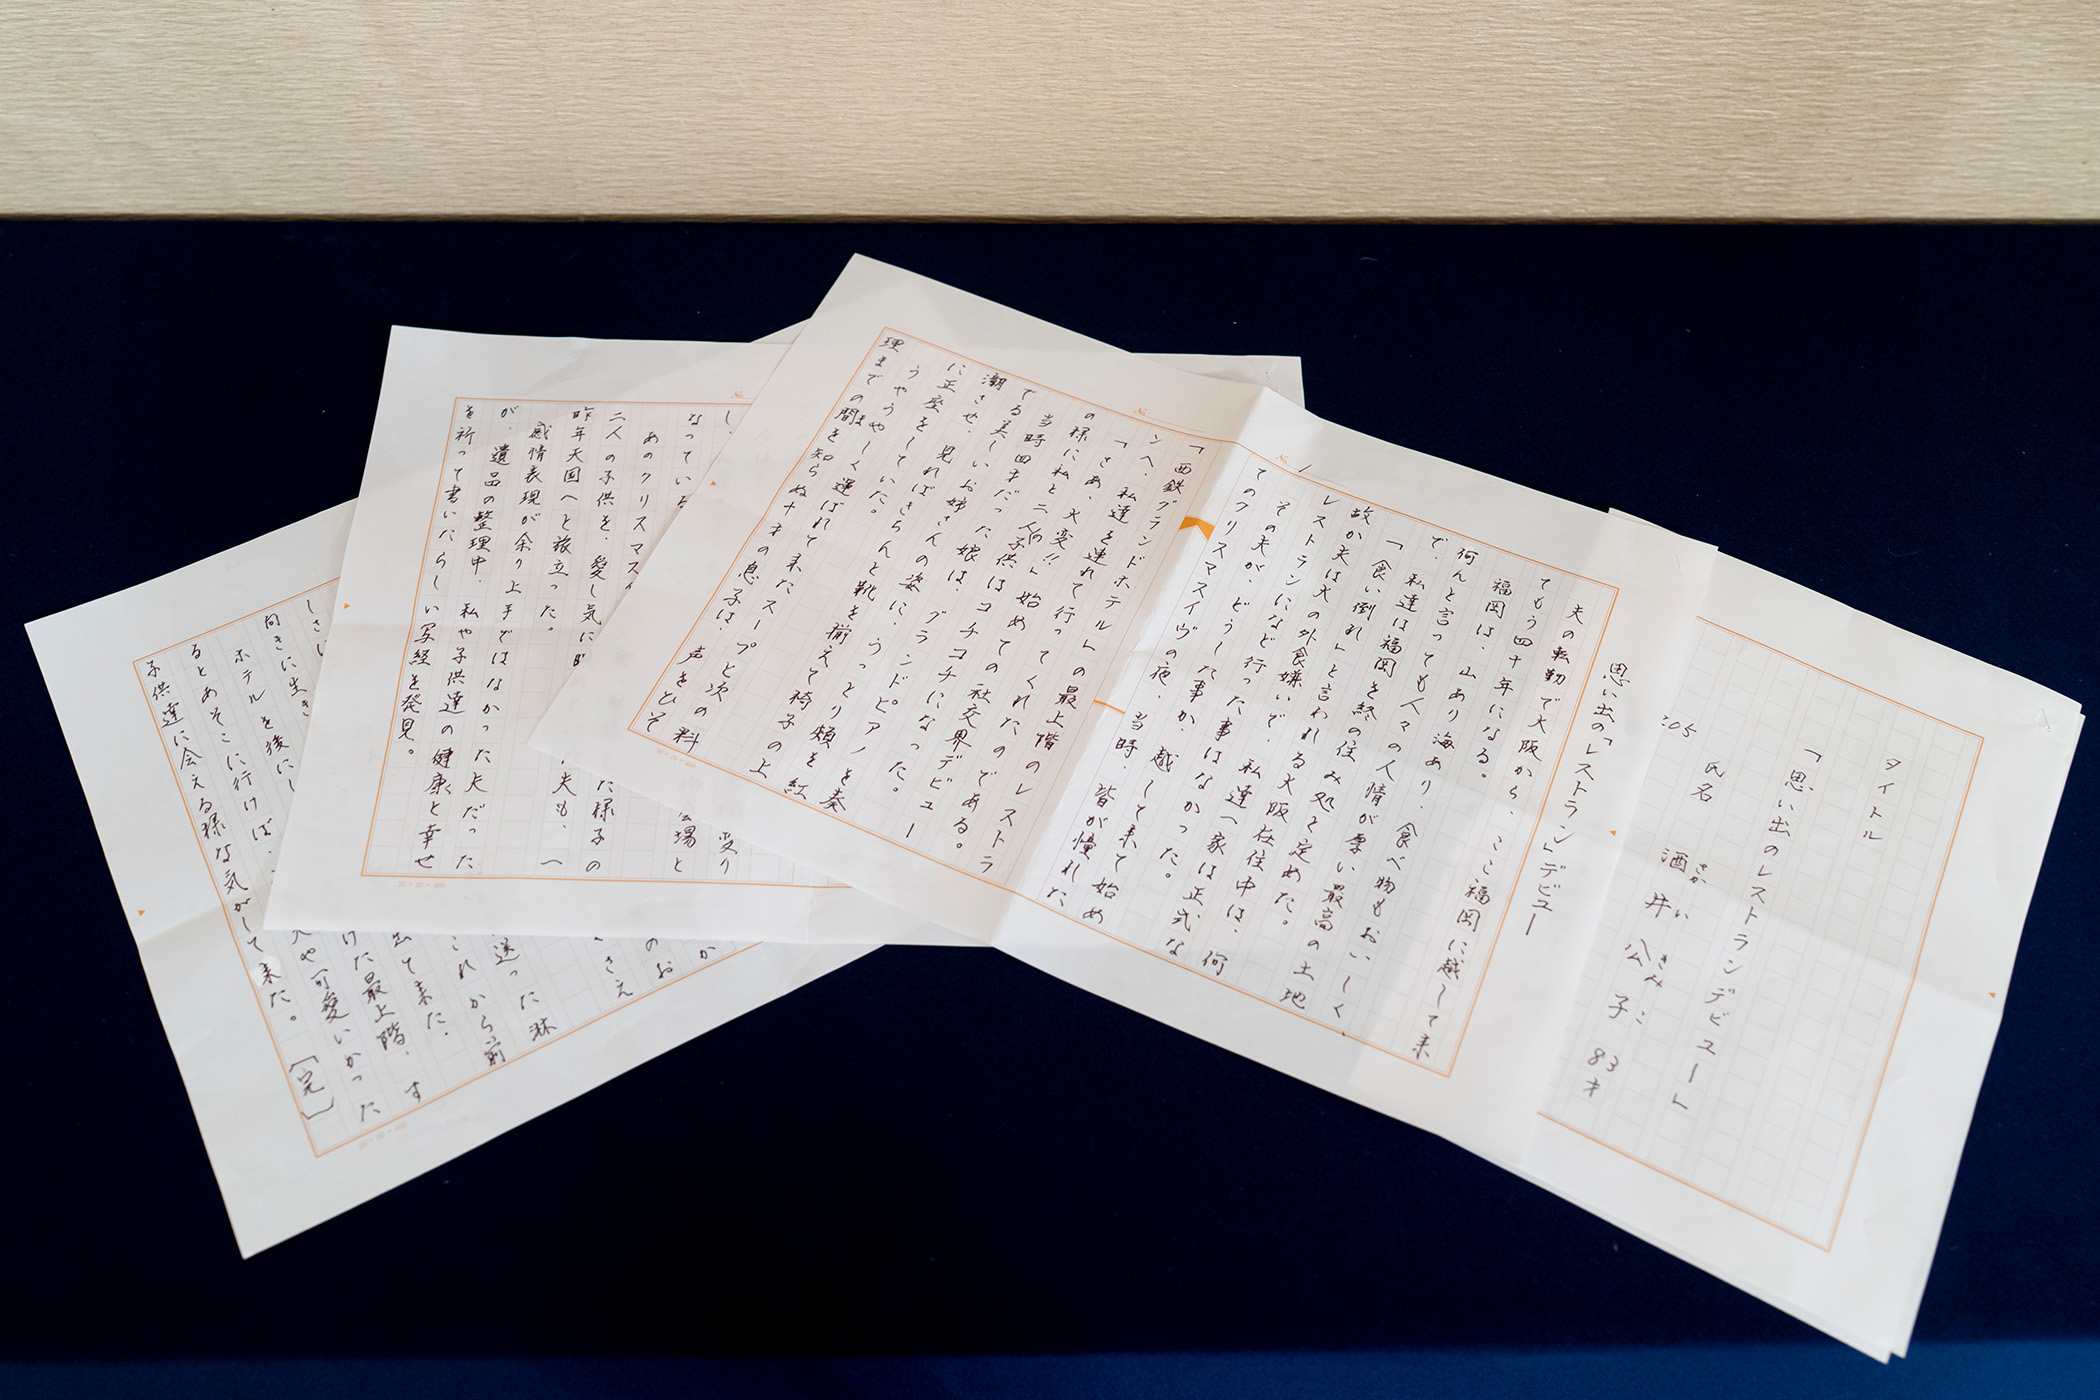 タイトル
「思い出のレストランデビュー」
氏名 酒井公子 83才
さか い きみ こ
205
思い出の「レストラン」デビュー
夫の転勤で大阪から、ここ福岡に越して来
てもう四十年になる。
福岡は、山あり海あり、食べ物もおいしく、
何んと言っても人々の人情が厚い最高の土地
で、私達は福岡を終の住み処と定めた。
「食い倒れ」と言われる大阪在住中は、何
故か夫は大の外食嫌いで、私達一家は正式な
レストランになど行った事はなかった。
その夫が、どうした事か、越して来て始め
てのクリスマスイヴの夜、当時、皆が憧れた
「西鉄グランドホテル」の最上階のレストラ
ンへ、私達を連れて行ってくれたのである。
「さあ、大変!!」始めての社交界デビュー
の様に私と二人の子供はコチコチになった。
当時四才だった娘は、グランドピアノを奏
でる美しいお姉さんの姿に、うっとり頬を紅
潮させ、見ればきちんと靴を揃えて椅子の上
に正座をしていた。
うやうやしく運ばれて来たスープと次の料
理までの間を知らぬ十才の息子は、声をひそ
ま
し、
なっている
あのクリスマス
二人の子供を、愛し気に
た様子の
昨年天国へと旅立った。
夫も、一
感情表現が余り上手ではなかった夫だった
が、遺品の整理中、私や子供達の健康と幸せ
く
を祈って書いたらしい写経を発見。
受り
会場と
か
のお
さえ
送った淋
しさ
これから前
向きに生き
出て来た。
ホテルを後にし
けた最上階、す
るとあそこに行けば、
や可愛いかった
子供達に会える様な気がして来た。
[完]